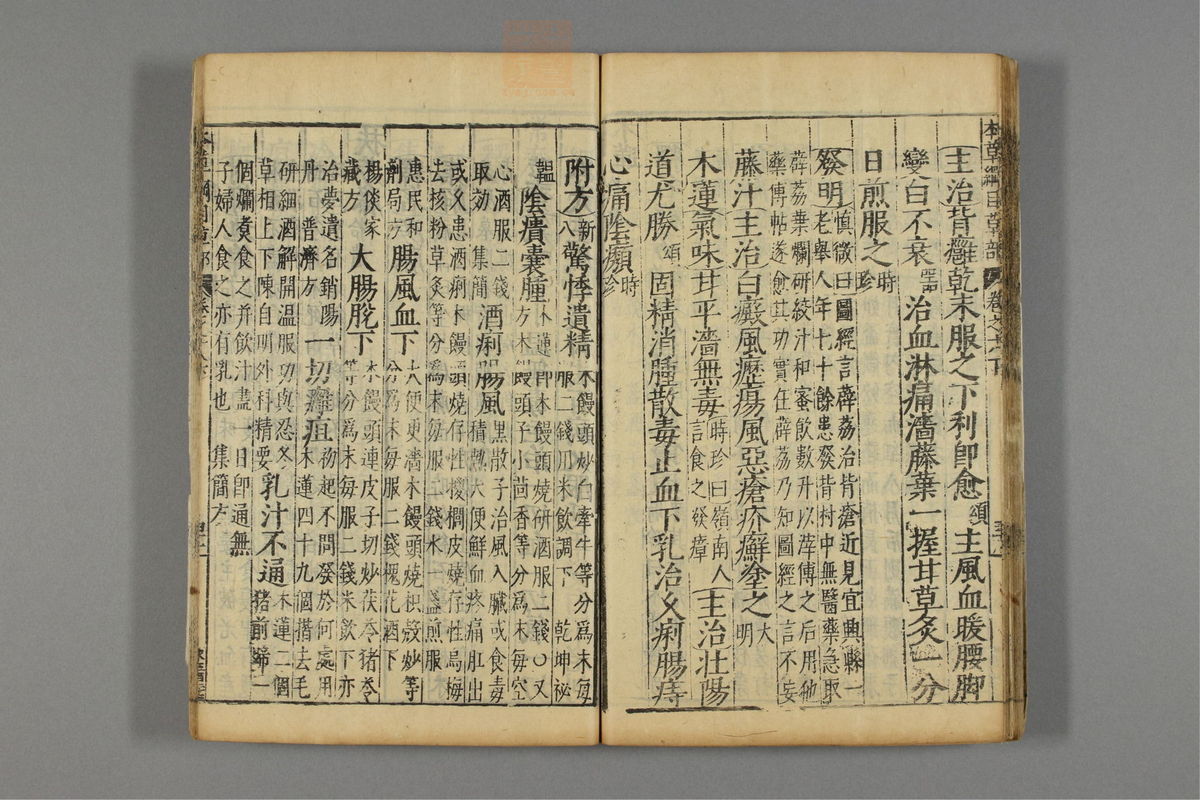 主治背癰乾末服之下利即愈頌主風血暖腰脚
變白不衰器治血淋痛濇藤葉一握甘草炙一分
日煎服之時珍
發明慎微曰圖經言薜荔治背瘡近見宜興縣一
老舉人年七十餘患發背村中無醫藥急取
薜荔葉爛研絞汁和蜜飲數升以滓傅之后用他
藥傅帖遂愈其功實在薜荔乃知圖經之言不妄
藤汁主治白癜風癧瘍風惡瘡疥癬塗之大明
木蓮氣味甘平濇無毒時珍曰嶺南人言食之發瘴主治壯陽
道尤勝頌固精消腫散毒止血下乳治久痢腸痔
心痛陰㿗時珍
附方新八驚悸遺精木饅頭炒白牽牛等分為末每
服二錢用米飲調下乾坤秘
韞陰㿉囊腫木蓮即木饅頭燒研酒服二錢○又
方木饅頭子小茴香等分為末每空
心酒服二錢
取効集簡酒痢腸風黑散子治風入臟或食毒
積熱大便鮮血疼痛肛出
或久患酒痢木饅頭燒存性㯶櫚皮燒存性烏梅
去核粉草炙等分為末每服二錢水一盞煎服
惠民和
劑局方腸風血下大便更濇木饅頭燒枳殼炒等
分為末每服二錢槐花酒下
楊倓家
藏方大腸脫下木饅頭連皮子切炒茯苓猪苓
等分為末每服二錢米飲下亦
治夢遺名銷陽
丹普濟方一切癰疽初起不問發於何處用
木蓮四十九個揩去毛
研細酒解開温服功與忍冬
草相上下陳自明外科精要乳汁不通木蓮二個
猪前蹄一
個爛煮食之并飲汁盡一日即通無
子婦人食之亦有乳也集簡方